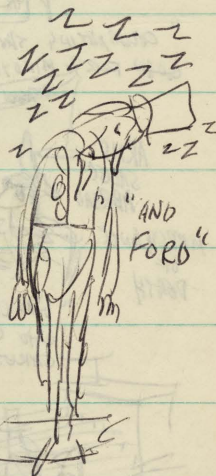 Z Z Z
Z Z Z Z Z
Z Z Z
Z Z Z
Z Z Z
"AND
FORD"